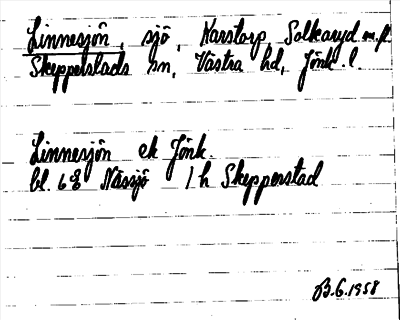 Linnesjön, sjö, Karstorp Solkaryd m.fl.
Skepperstads sn, Västra hd, Jönk. l.
Linnesjön ek Jönk.
bl. 6 Nässjö 1 h Skepperstad
B.G. 1958